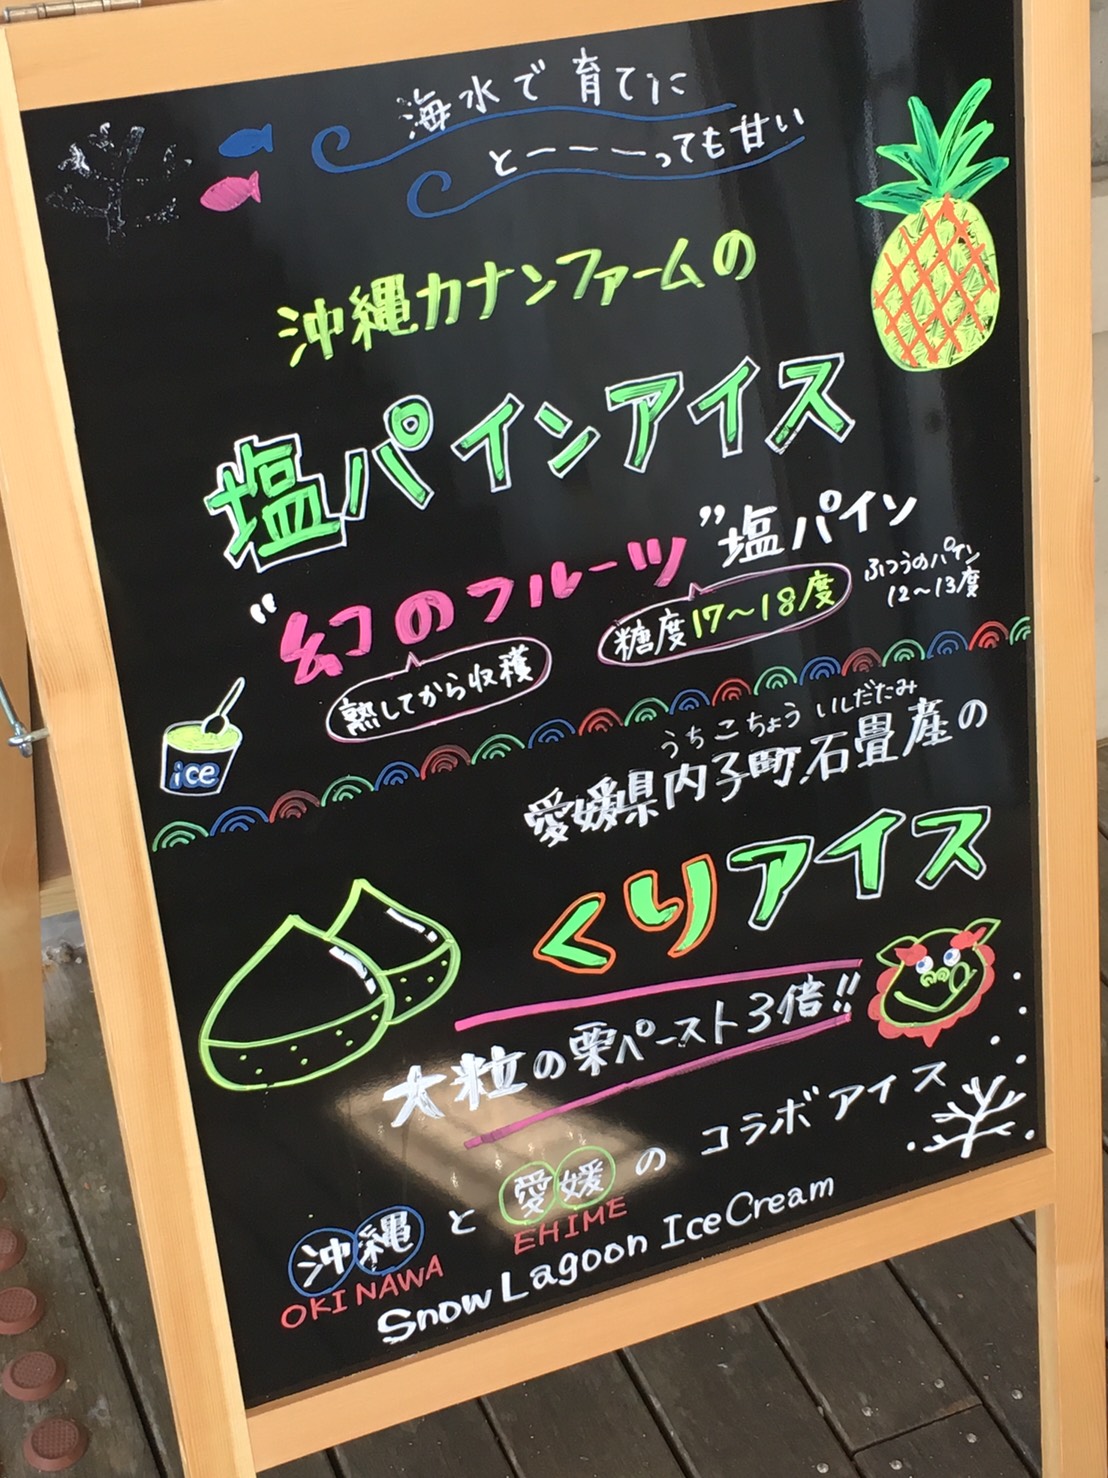 海水で育てた
とーーーっても甘い
沖縄カナンファームの
塩パインアイス
"幻のフルーツ"塩パイン
熟してから収穫
糖度17〜18度
ふつうのパイン
12〜13度
ice
うちこちょう いしだたみ
愛媛県内子町.石畳産の
くりアイス
大粒の栗ペースト3倍!!
沖縄と愛媛のコラボアイス
OKINAWA EHIME
Snow Lagoon Ice Cream